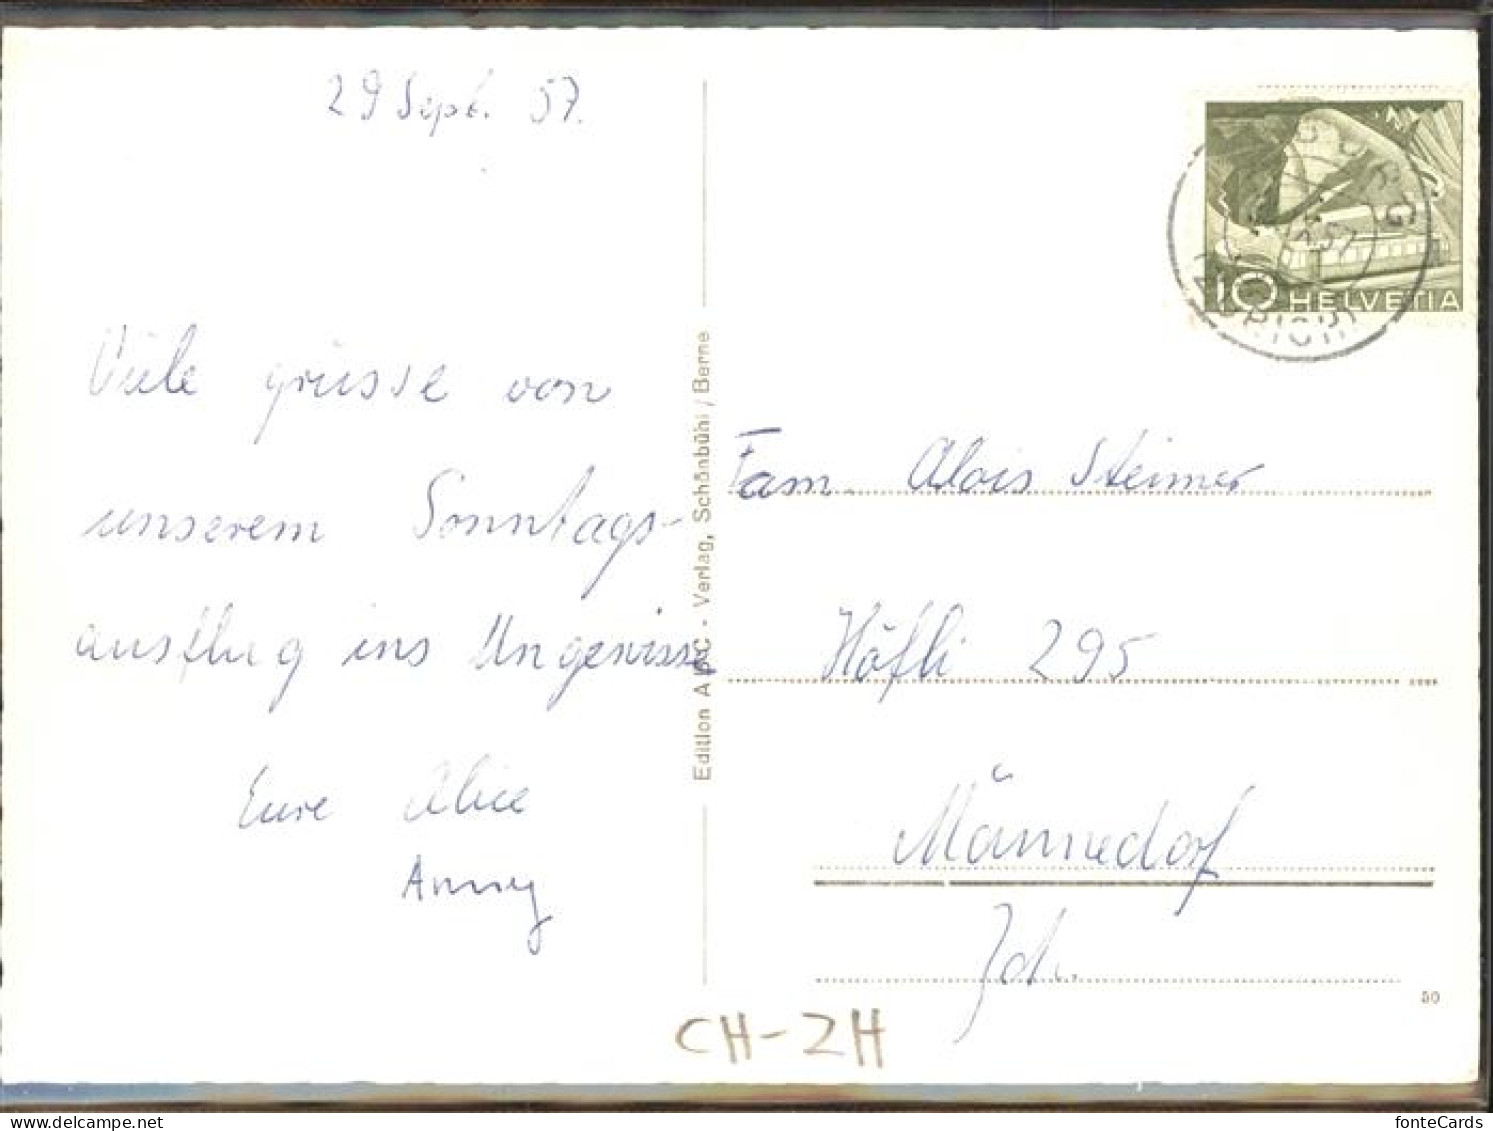 29 Sept. 57.
Viele grüsse von
unserem Sonntags-
ausflug ins Ungewisse
Eure Alice
Anny
Edition APC - Verlag, Schönbühl / Berne
10 HELVETIA
(ZÜRICH)
Fam. Alois Steimer
Höfli 295
Männedorf
Zch.
50
CH-ZH
fonteCards